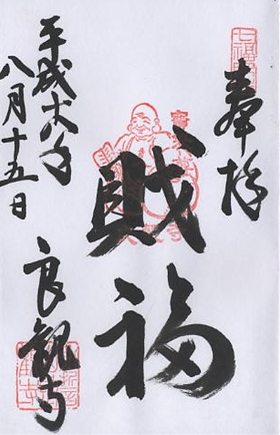 奉拝
財福
平成十八年
八月十五日
良観寺